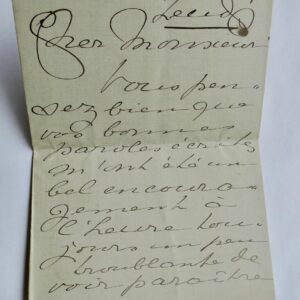 Lundi
Cher Monsieur
Vous pen-
sez bien que
vos bonnes
paroles écrites
m'ont été un
bel encoura-
gement à
l'heure tou-
jours un peu
troublante de
voir paraître